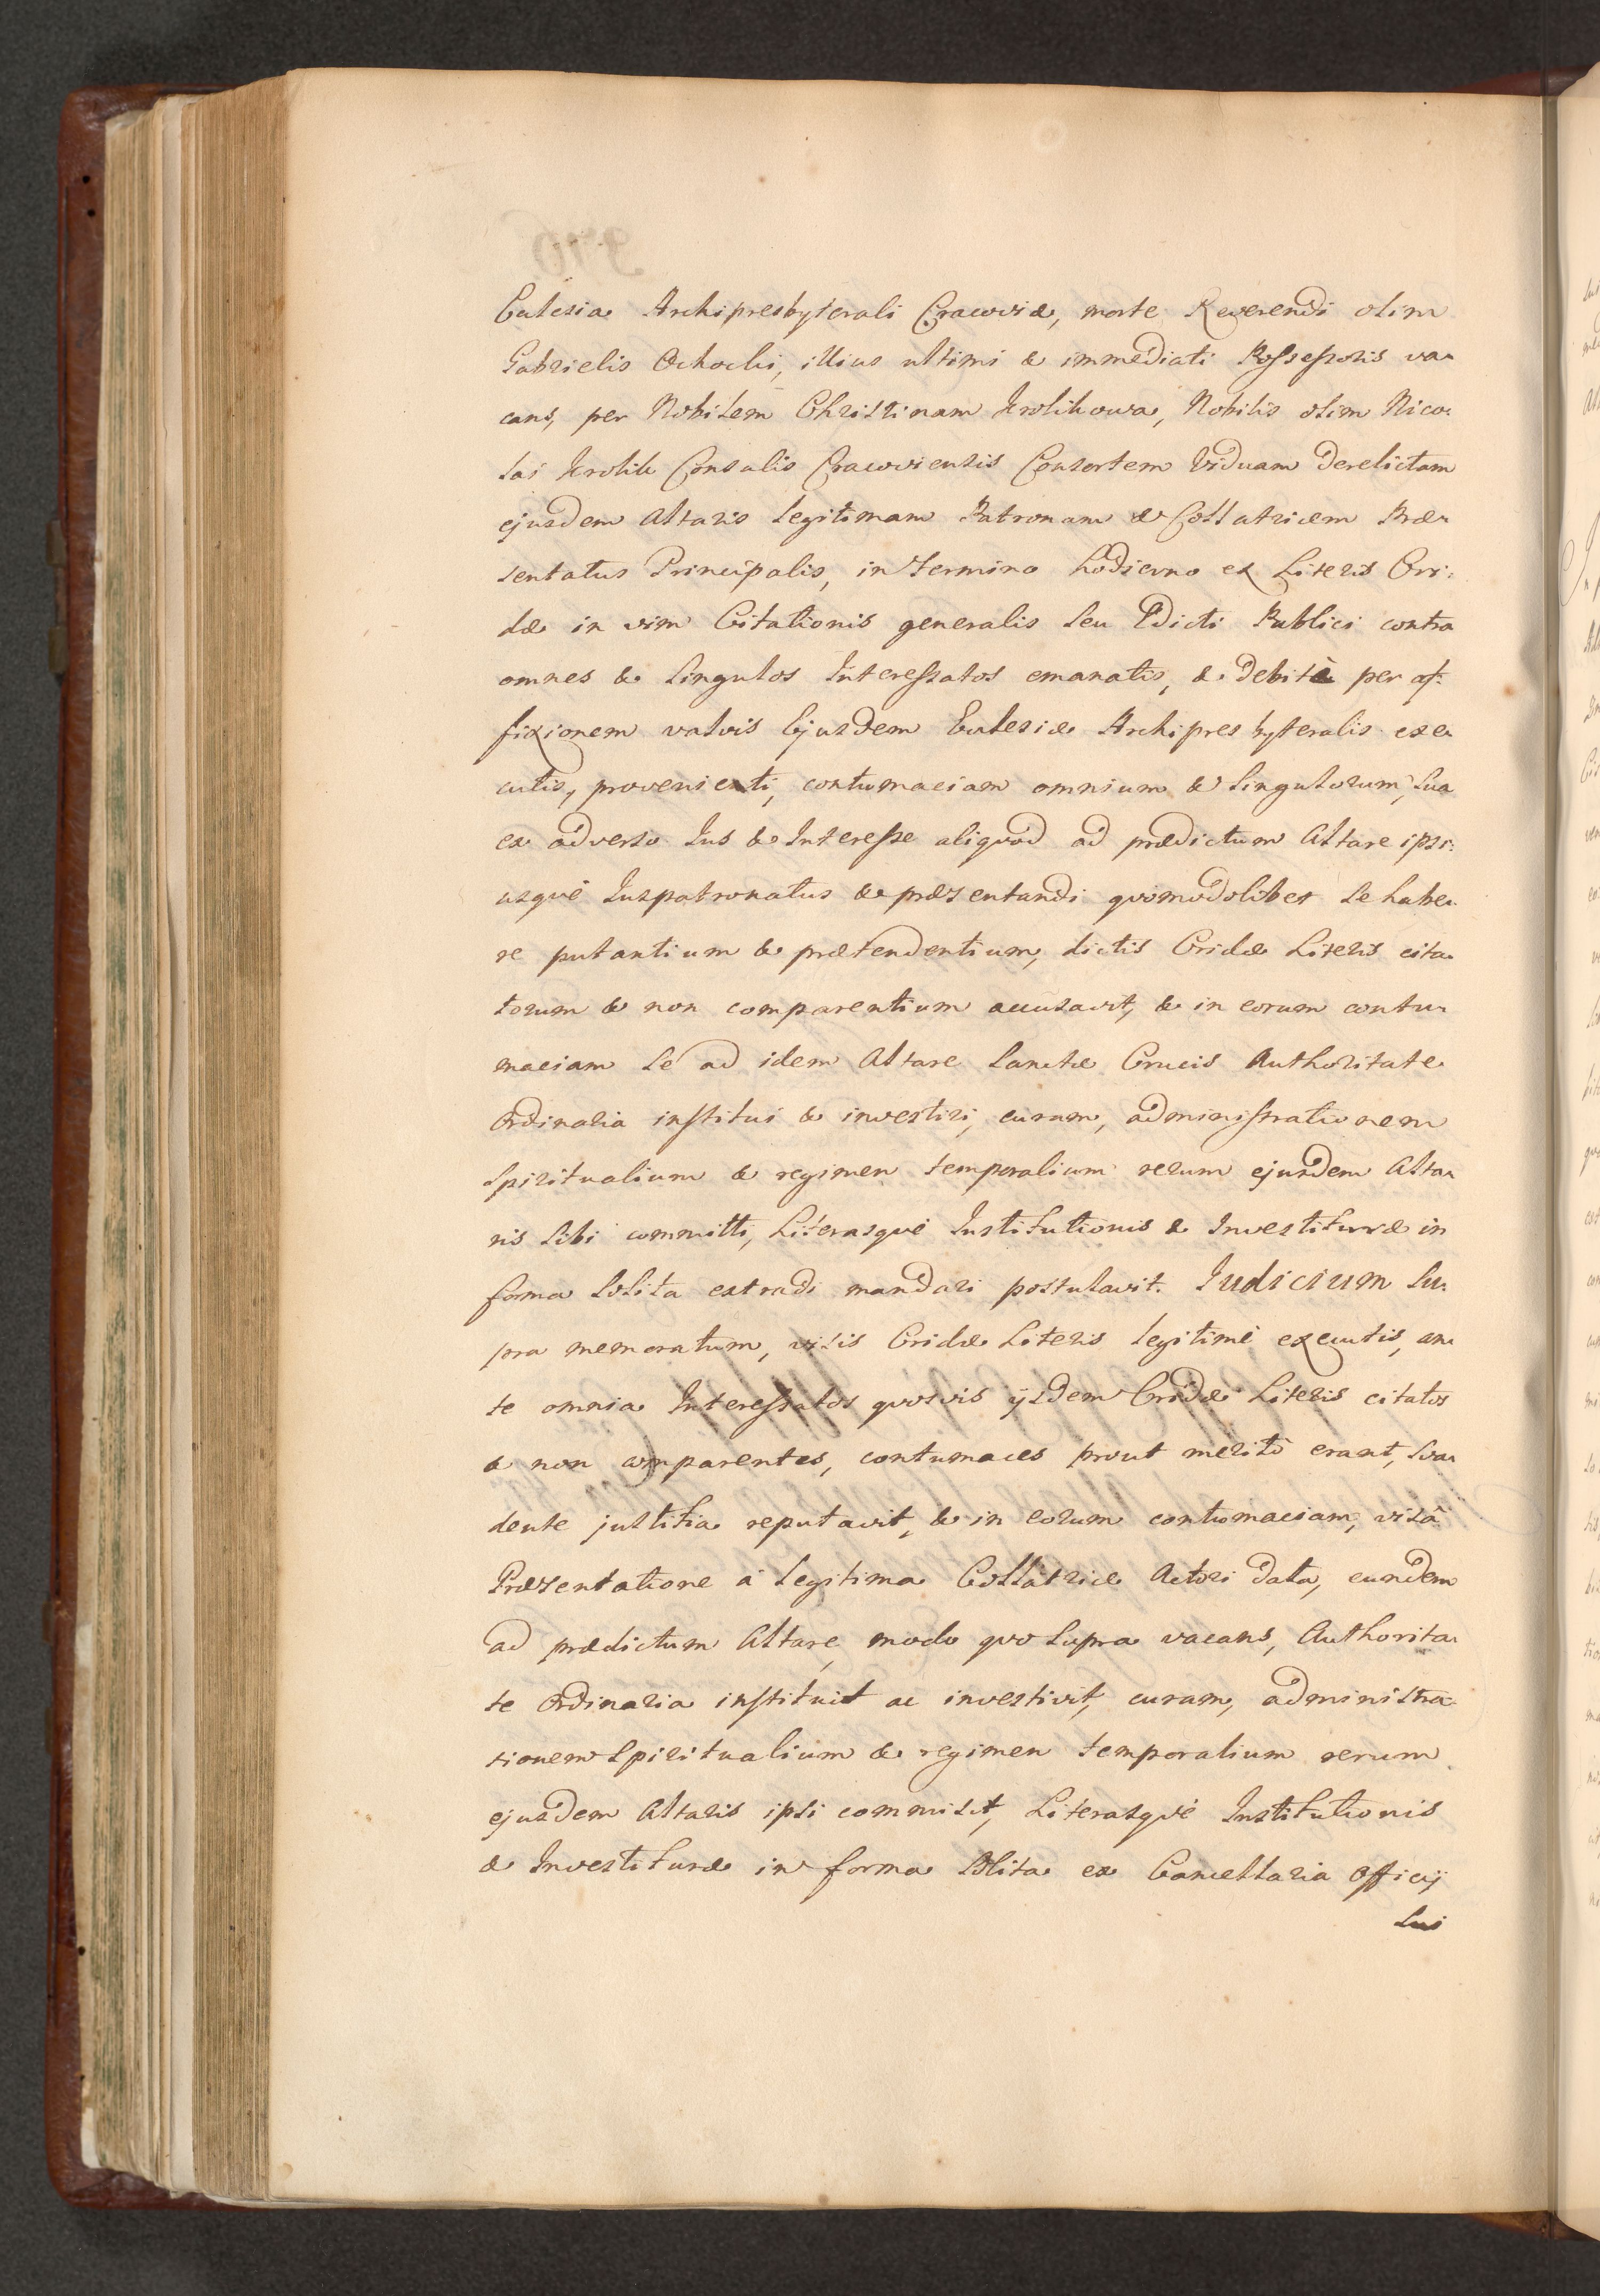 Ecclesia Archipresbyterali Cracoviæ, morte Reverendi olim
Gabrielis Ochocki, illius ultimi & immediati Possessoris va-
cans, per Nobilem Christinam Krolikowa, Nobilis olim Nico-
lai Krolik Consulis Cracoviensis Consortem Viduam derelictam
ejusdem Altaris legitimam Patronam & Collatricem Præ-
sentatus Principalis, in termino hodierno ex Literis Cri-
dæ in vim Citationis generalis seu Edicti Publici contra
omnes & singulos Interessatos emanatis, & debitè per af-
fixionem valvis Ejusdem Ecclesiæ Archipresbyteralis exe-
cutis, provenienti, contumaciam omnium & singulorum, sua
ex adverso Ius & Interesse aliquod ad prædictum Altare ipsi-
usquè Juspatronatus & præsentandi quomodolibet se habe-
re putantium & prætendentium, dictis Cridæ Literis cita-
torum & non comparentium accusavit, & in eorum contu-
maciam se ad idem Altare Sanctæ Crucis Authoritate
Ordinaria institui & investiri, curam, administrationem
spiritualium & regimen temporalium rerum ejusdem Alta-
ris sibi committi, Literasquè Institutionis & Investituræ in
forma solita extradi mandari postulavit. Judicium su-
pra memoratum, visis Cridæ Literis legitimè executis, an-
te omnia Interessatos quosvis ijsdem Cridæ Literis citatos
& non comparentes, contumaces prout meritò erant, sua-
dente justitia reputavit, & in eorum contumaciam, visâ
Præsentatione à legitima Collatrice Actori data, eundem
ad prædictum Altare, modo quo supra vacans, Authorita-
te Ordinaria instituit ac investivit, curam, administra-
tionem spiritualium & regimen temporalium rerum
ejusdem Altaris ipsi commisit, Literasquè Institutionis
& Investituræ in forma solita ex Cancellaria Officij
sui